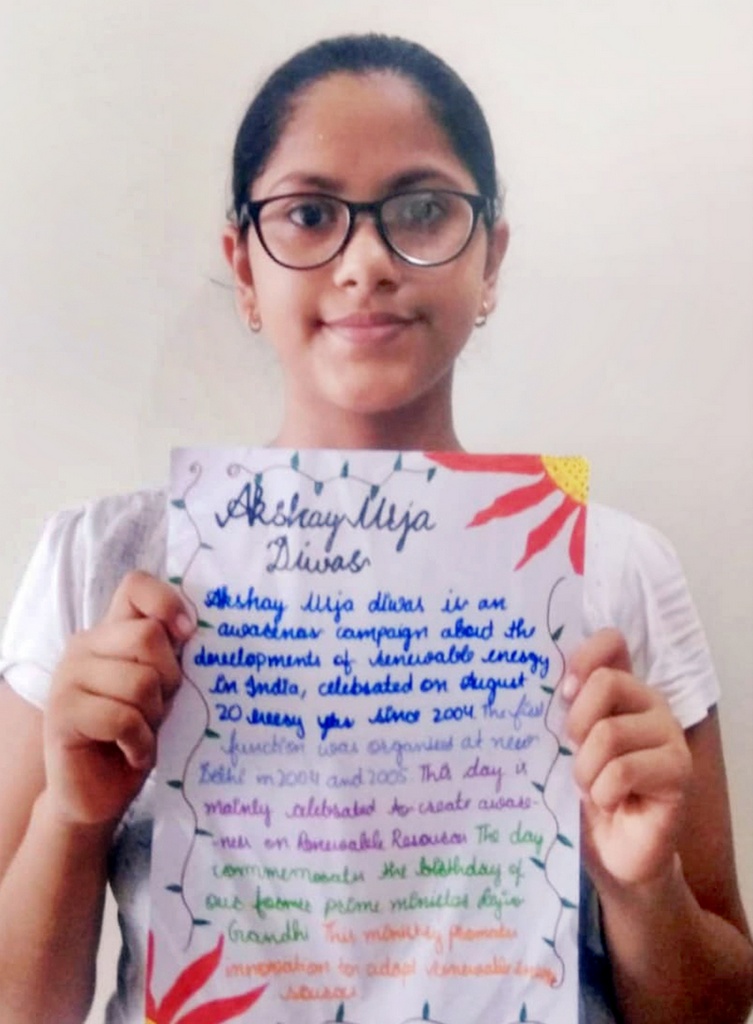 Akshay Urja
Diwas
Akshay Urja diwas is an
awareness campaign about the
developments of renewable energy
in India, celebrated on August
20 every year since 2004. The first
function was organised at new
Delhi in 2004 and 2005. This day is
mainly celebrated to create aware-
-ness on Renewable Resources The day
commemorates the birthday of
our former prime minister Rajiv
Gandhi This ministry promotes
innovation to adopt renewable